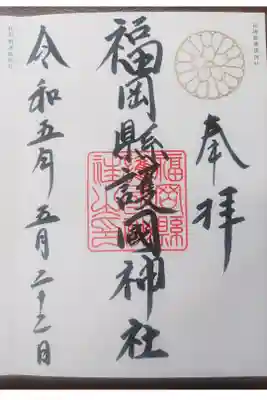 奉拝
福岡縣護國神社
令和五年 五月二十二日